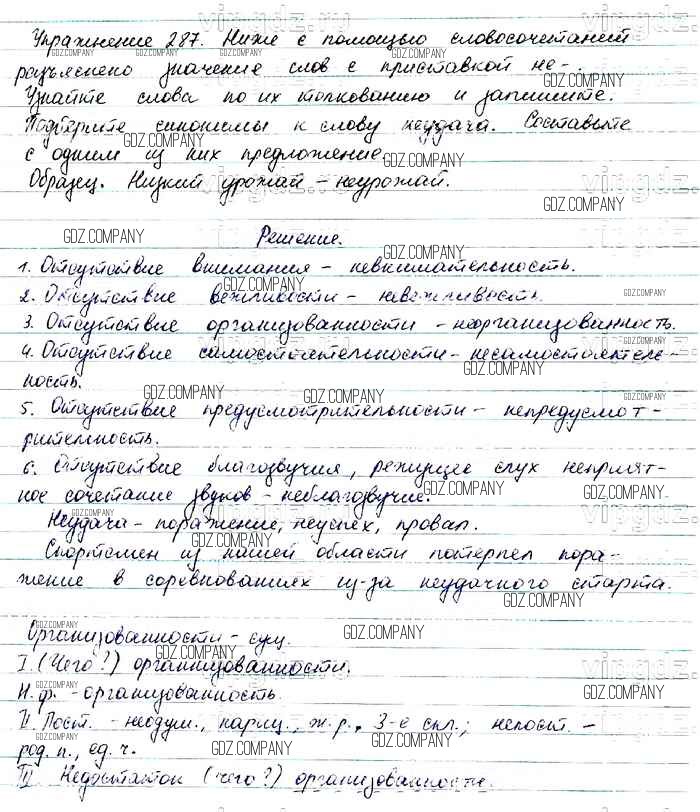 Упражнение 287. Ниже с помощью словосочетаний
разъяснено значение слов с приставкой не-.
Узнайте слова по их толкованию и запишите.
Подберите синонимы к слову неудача. Составьте
с одним из них предложение.
Образец. Низкий урожай – неурожай.
Решение.
1. Отсутствие внимания – невнимательность.
2. Отсутствие вежливости – невежливость.
3. Отсутствие организованности – неорганизованность.
4. Отсутствие самостоятельности – несамостоятель-
ность.
5. Отсутствие предусмотрительности – непредусмот-
рительность.
6. Отсутствие благозвучия, режущее слух неприят-
ное сочетание звуков – неблагозвучие.
Неудача – поражение, неуспех, провал.
Спортсмен из нашей области потерпел пора-
жение в соревнованиях из-за неудачного старта.
Организованности – сущ.
I. (Чего?) организованности.
Н.ф. – организованность.
II. Пост. – неодуш., нариц., ж.р., 3-е скл.; непост. –
род. п., ед. ч.
III Недостаток (чего?) организованности.
vingdz.ru
GDZ.COMPANY